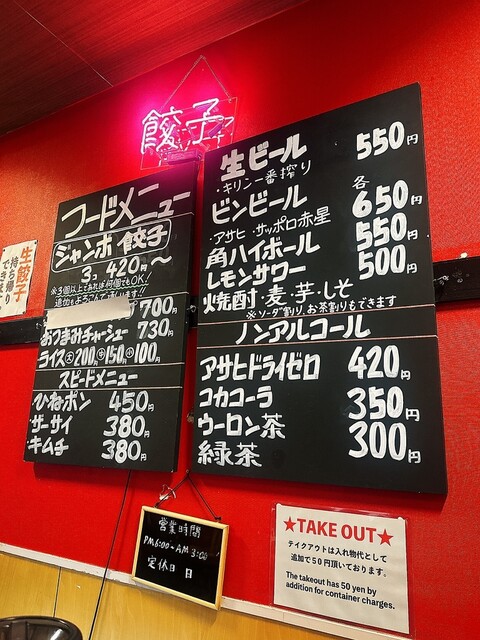 餃子
フードメニュー
ジャンボ餃子
3コ 420円〜
※3個以上であれば何個でもOK!
追加もよろこんで承ります!
700円
おつまみチャーシュー 730円
ライス 大200円 中150円 小100円
スピードメニュー
ひねポン 450円
ザーサイ 380円
キムチ 380円
生ビール 550円
・キリン一番搾り
ビンビール 各650円
・アサヒ・サッポロ赤星
角ハイボール 550円
レモンサワー 500円
焼酎・麦・芋・しそ
※ソーダ割り、お茶割りもできます
ノンアルコール
アサヒドライゼロ 420円
コカコーラ 350円
ウーロン茶 300円
緑茶
生餃子
持ち帰り
できます
営業時間
PM6:00~AM3:00
定休日 日
★TAKE OUT★
テイクアウトは入れ物代として
追加で50円頂いております。
The takeout has 50 yen by
addition for container charges.